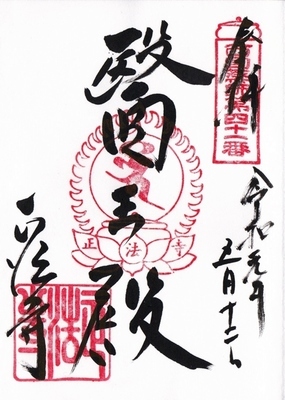 奉拝
西国薬師第四十一番
令和元年
五月十二日
醫王殿
正法寺
正法寺